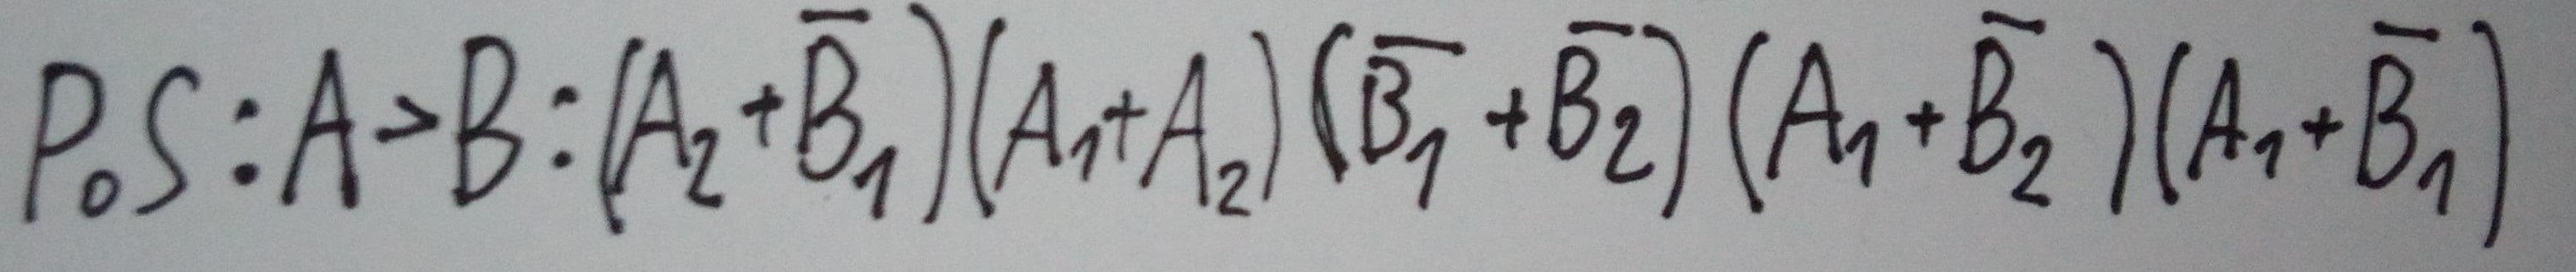 PoS: A>B: (A₂+B̅₁)(A₁+A₂)(B̅₁+B̅₂)(A₁+B̅₂)(A₁+B̅₁)